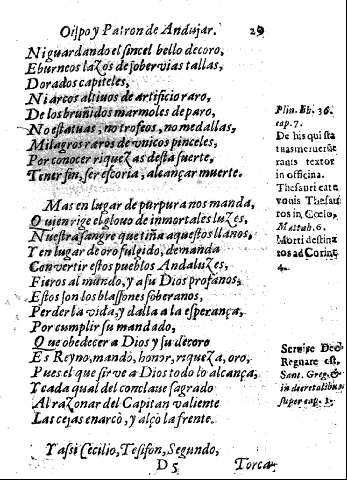 Oispo y Patron de Andujar. 29
Ni guardando el sincel bello decoro,
Eburneos lazos de sobervias tallas,
Dorados capiteles,
Ni arcos altiuos de artificio raro,
De los bruñidos marmoles de paro,
No estatuas, no trofeos, no medallas,
Milagros raros de vnicos pinceles,
Por conocer riquezas desta suerte,
Tener fin, ser escoria, alcançar muerte.
Mas en lugar de purpura nos manda,
Quien rige el glouo de inmortales luzes,
Nuestra sangre que tiña aquestos llanos,
Y en lugar de oro fulgido, demanda
Convertir estos pueblos Andaluzes,
Fieros al mundo, y a su Dios profanos,
Estos son los blassones soberanos,
Perder la vida, y dalla a la esperança,
Por cumplir su mandado,
Que obedecer a Dios y su decoro
Es Reyno, mando, honor, riqueza, oro,
Pues el que sirve a Dios todo lo alcança,
Y cada qual del conclaue sagrado
Al razonar del Capitan valiente
Las cejas enarcò, y alçò la frente.
Y assi Cecilio, Tesifon, Segundo,
D 5 Torca-
Plin. lib. 36.
cap. 7.
De his qui sta
tuas meruerūt
rauis textor
in officina.
Thesauri
rauis Thesau
ros in Cœlo,
Mattah. 6.
Morti destina
tos ad Corint
4.
Seruire Deo
Regnare est,
Sant. Greg.
in decretalibus
super cap. 1.